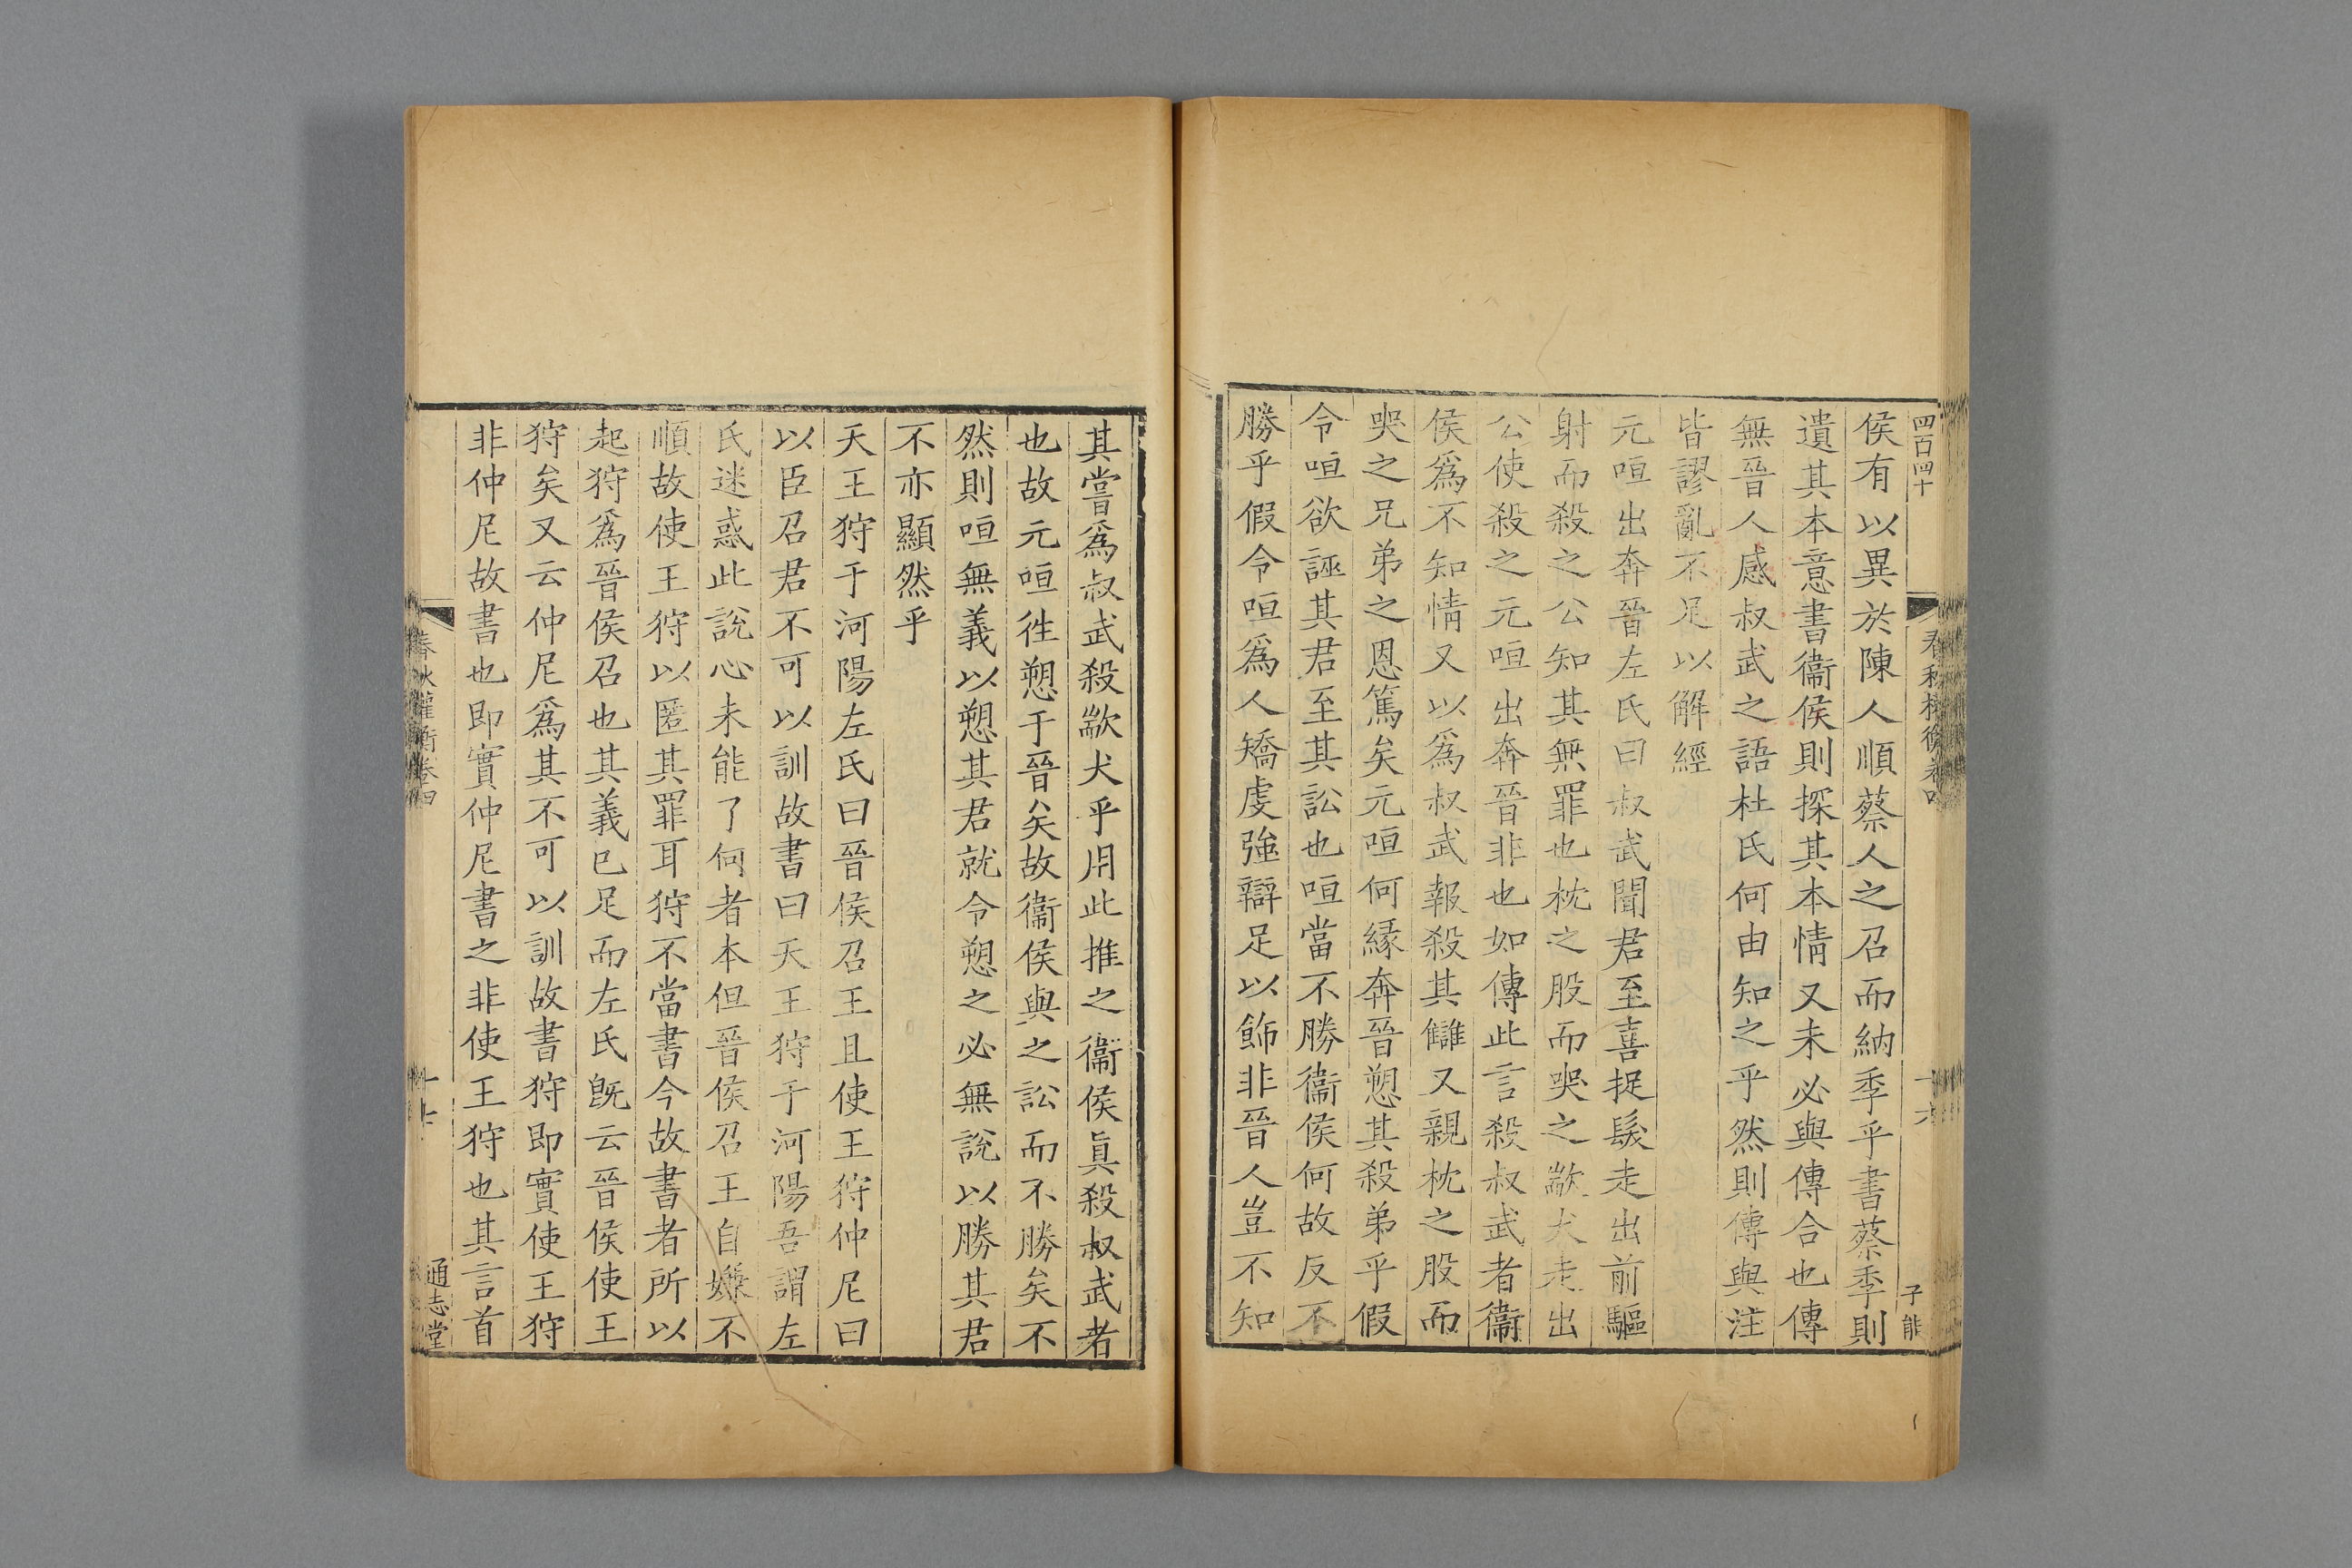 四百四十
子能
侯有以異於陳人順蔡人之召而納季乎書蔡季則
遺其本意書衞侯則探其本情又未必與傳合也傳
無晉人感叔武之語杜氏何由知之乎然則傳與注
皆謬亂不足以解經
元咺出奔晉左氏曰叔武聞君至喜捉髮走出前驅
射而殺之公知其無罪也枕之股而哭之歂犬走出
公使殺之元咺出奔晉非也如傳此言殺叔武者衞
侯爲不知情又以爲叔武報殺其讎又親枕之股而
哭之兄弟之恩篤矣元咺何緣奔晉愬其殺弟乎假
令咺欲誣其君至其訟也咺當不勝衞侯何故反不
勝乎假令咺爲人矯虔強辯足以飾非晉人豈不知
其嘗爲叔武殺歂犬乎用此推之衞侯眞殺叔武者
也故元咺徃愬于晉矣故衞侯與之訟而不勝矣不
然則咺無義以愬其君就令愬之必無說以勝其君
不亦顯然乎
天王狩于河陽左氏曰晉侯召王且使王狩仲尼曰
以臣召君不可以訓故書曰天王狩于河陽吾謂左
氏迷惑此說心未能了何者本但晉侯召王自嫌不
順故使王狩以匿其罪耳狩不當書今故書者所以
起狩爲晉侯召也其義已足而左氏旣云晉侯使王
狩矣又云仲尼爲其不可以訓故書狩即實使王狩
非仲尼故書也即實仲尼書之非使王狩也其言首
春秋權衡卷四
十七
通志堂